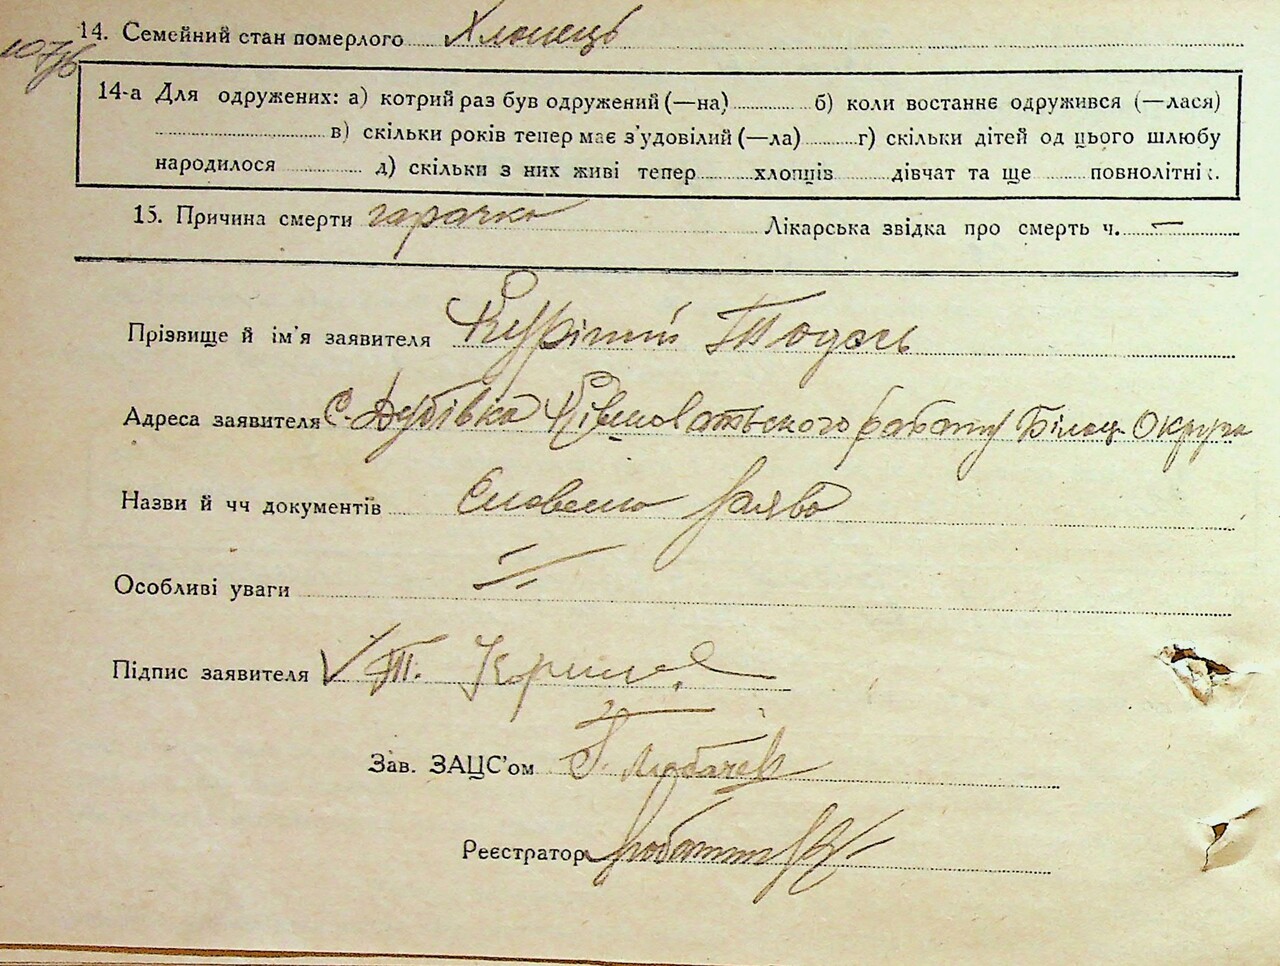 14. Семейний стан померлого Хлопець
107б
14-а Для одружених: а) котрий раз був одружений (—на) б) коли востаннє одружився (—лася)
в) скільки років тепер має з'удовілий (—ла) г) скільки дітей од цього шлюбу
народилося д) скільки з них живі тепер хлопців дівчат та ще повнолітніх.
15. Причина смерти гарачка Лікарська звідка про смерть ч. —
Прізвище й ім'я заявителя Тодось
Адреса заявителя С. Дубівка району Білоц. Округа
Назви й чч документів Словесно заява
Особливі уваги
Підпис заявителя Т.
Зав. ЗАЦС'ом
Реєстратор